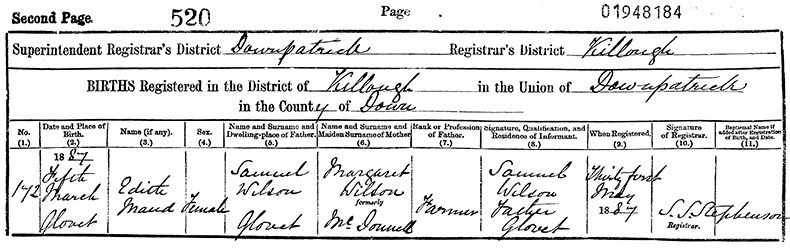 Second Page. 520 Page 01948184
Superintendent Registrar's District Downpatrick Registrar's District Killough
BIRTHS Registered in the District of Killough in the Union of Downpatrick
in the County of Down
No. (1.) Date and Place of Birth. (2.) Name (if any). (3.) Sex. (4.) Name and Surname and Dwelling-place of Father. (5.) Name and Surname and Maiden Surname of Mother. (6.) Rank or Profession of Father. (7.) Signature, Qualification, and Residence of Informant. (8.) When Registered. (9.) Signature of Registrar. (10.) Baptismal Name if added after Registration of Birth, and Date. (11.)
172 1887 Fifth March Glovet
Edith Maud
Female
Samuel Wilson Glovet
Margaret Wilson formerly Mc Donnell
Farmer
Samuel Wilson Father Glovet
Thirty first May 1887
S. S. Stephenson Registrar.